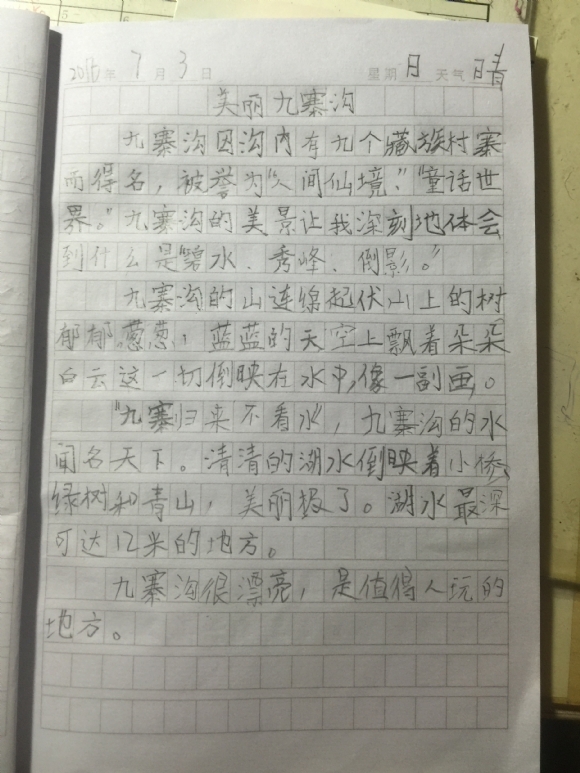 2016年 7月 3日 星期 日 天气 晴
美丽九寨沟
九寨沟因沟内有九个藏族村寨
而得名，被誉为“人间仙境”“童话世
界。”九寨沟的美景让我深刻地体会
到什么是“碧水、秀峰、倒影。”
九寨沟的山连绵起伏山上的树
郁郁葱葱，蓝蓝的天空上飘着朵朵
白云这一切倒映在水中，像一副画。
“九寨归来不看水”，九寨沟的水
闻名天下。清清的湖水倒映着小桥
绿树和青山，美丽极了。湖水最深
可达12米的地方。
九寨沟很漂亮，是值得人玩的
地方。